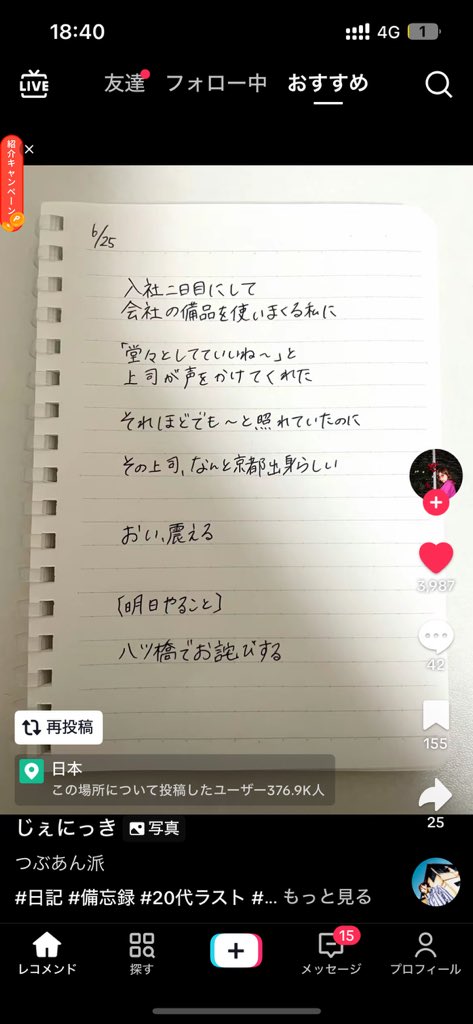 18:40
4G
1
LIVE
友達
フォロー中
おすすめ
紹介キャンペーン
6/25
入社二日目にして
会社の備品を使いまくる私に
「堂々としてていいね〜」と
上司が声をかけてくれた
それほどでも〜と照れていたのに
その上司、なんと京都出身らしい
おい、震える
[明日やること]
八ツ橋でお詫びする
3,987
42
155
25
再投稿
日本
この場所について投稿したユーザー376.9K人
じぇにっき
写真
つぶあん派
#日記 #備忘録 #20代ラスト #... もっと見る
レコメンド
探す
15
メッセージ
プロフィール